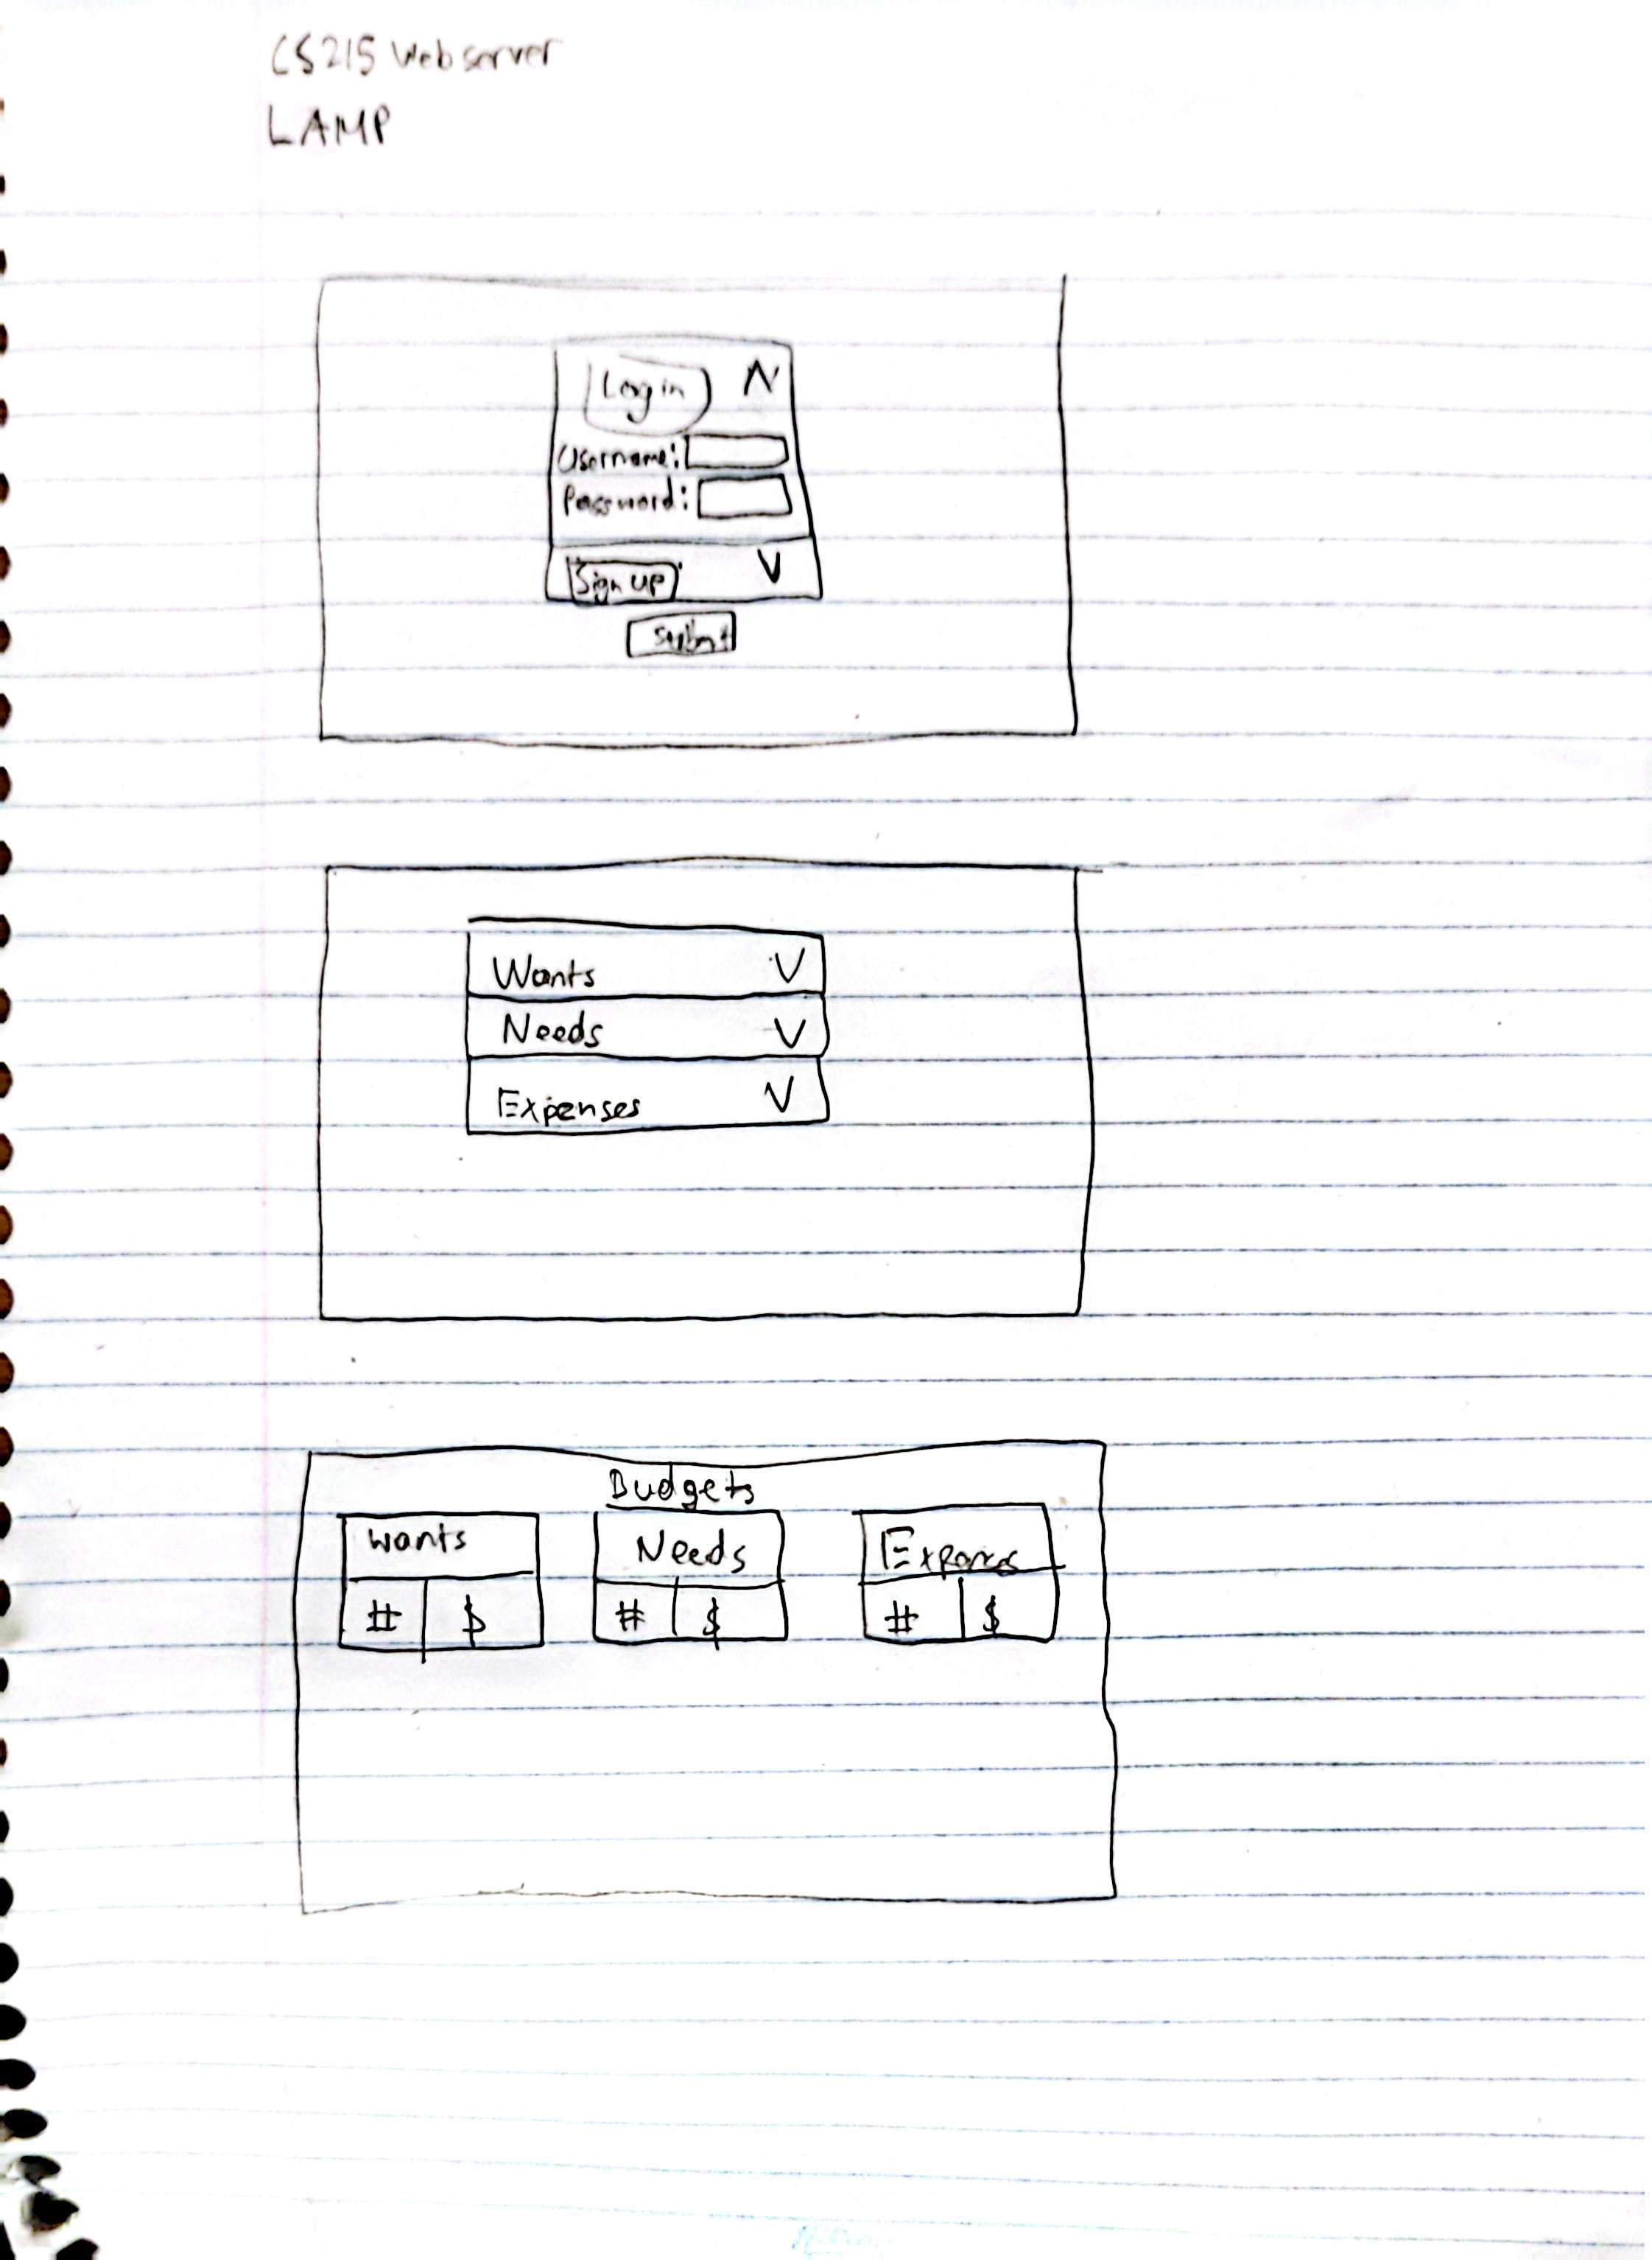 CS215 Webserver
LAMP
Login Λ
Username:
Password:
Sign up V
Submit
Wants V
Needs V
Expenses V
Budgets
Wants Needs Expenses
# $ # $ # $